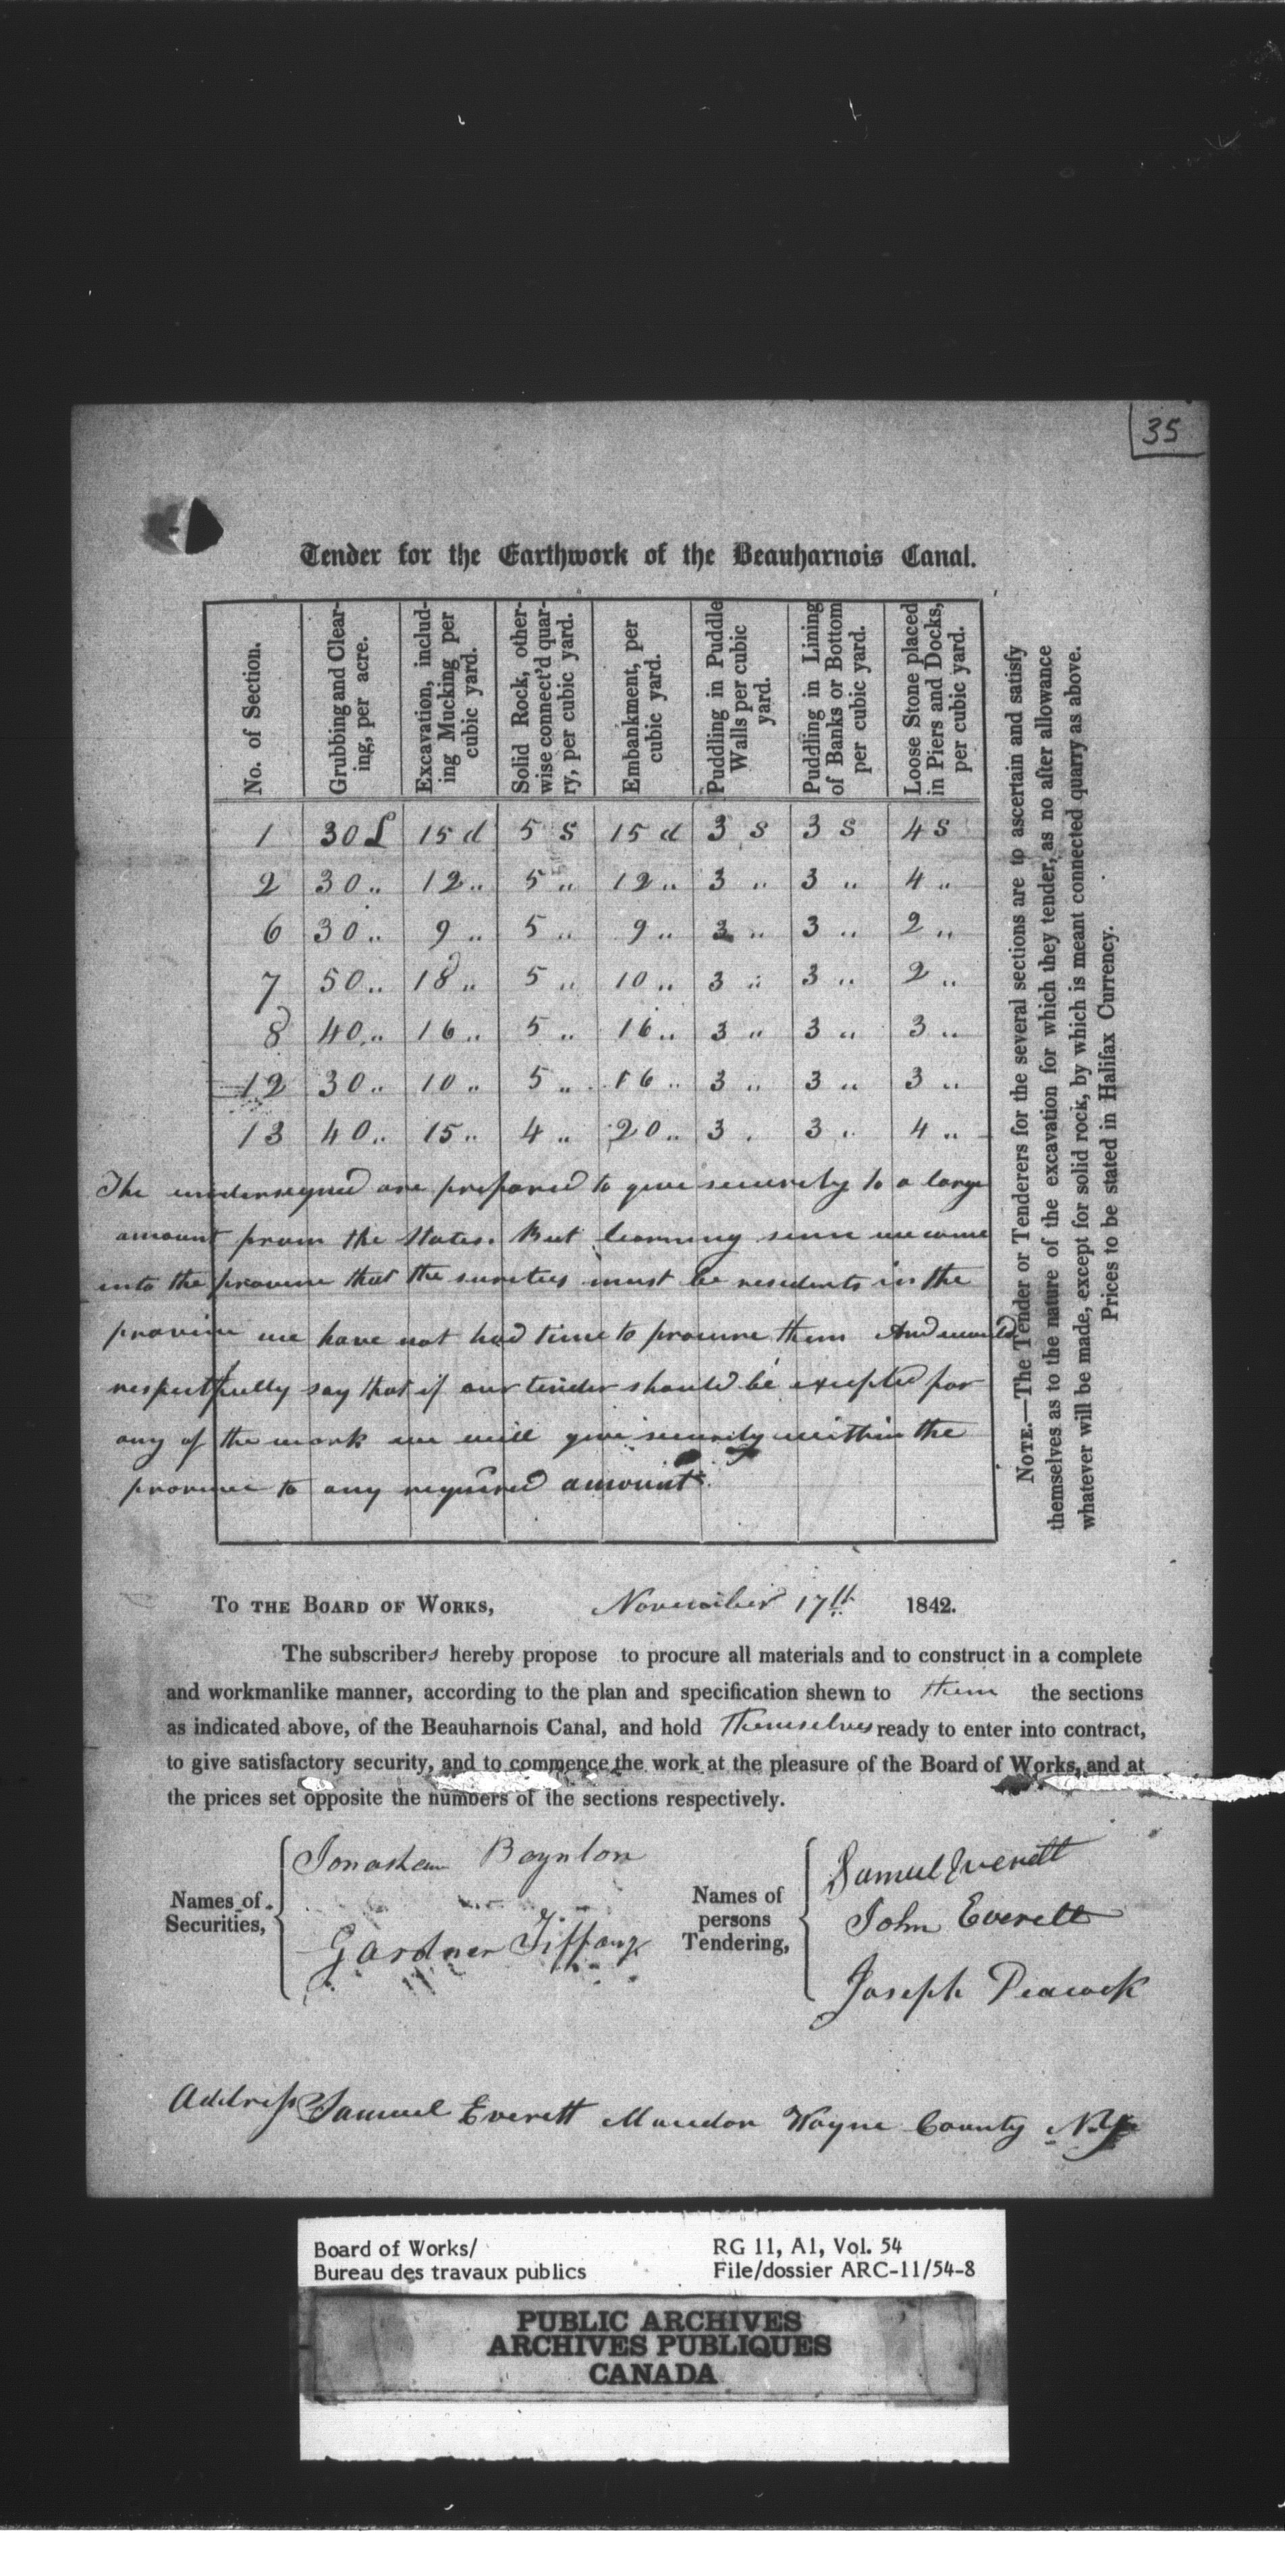 35
Tender for the Earthwork of the Beauharnois Canal.
No. of Section. | Grubbing and Clear-ing, per acre. | Excavation, includ-ing Mucking per cubic yard. | Solid Rock, other-wise connect'd quar-ry, per cubic yard. | Embankment, per cubic yard. | Puddling in Puddle Walls per cubic yard. | Puddling in Lining of Banks or Bottom per cubic yard. | Loose Stone placed in Piers and Docks, per cubic yard.
1 | 30 £ | 15 d | 5 s | 15 d | 3 s | 3 s | 4 s
2 | 30 „ | 12 „ | 5 „ | 12 „ | 3 „ | 3 „ | 4 „
6 | 30 „ | 9 „ | 5 „ | 9 „ | 3 „ | 3 „ | 2 „
7 | 50 „ | 18 „ | 5 „ | 10 „ | 3 „ | 3 „ | 2 „
8 | 40 „ | 16 „ | 5 „ | 16 „ | 3 „ | 3 „ | 3 „
12 | 30 „ | 10 „ | 5 „ | 16 „ | 3 „ | 3 „ | 3 „
13 | 40 „ | 15 „ | 4 „ | 20 „ | 3 „ | 3 „ | 4 „
The undersigned are prepared to give security to a large
amount from the States. But learning since we came
into the province that the sureties must be residents in the
province we have not had time to procure them And would
respectfully say that if our tender should be excepted for
any of the work we will give security within the
province to any required amount.
NOTE.—The Tender or Tenderers for the several sections are to ascertain and satisfy
themselves as to the nature of the excavation for which they tender, as no after allowance
whatever will be made, except for solid rock, by which is meant connected quarry as above.
Prices to be stated in Halifax Currency.
TO THE BOARD OF WORKS, November 17th 1842.
The subscribers hereby propose to procure all materials and to construct in a complete
and workmanlike manner, according to the plan and specification shewn to them the sections
as indicated above, of the Beauharnois Canal, and hold Themselves ready to enter into contract,
to give satisfactory security, and to commence the work at the pleasure of the Board of Works, and at
the prices set opposite the numbers of the sections respectively.
Names of Securities,
Jonathan Boynton
Gardner Tiffany
Names of persons Tendering,
Samuel Everett
John Everett
Joseph Peacock
Address Samuel Everett Macedon Wayne County N.Y.
Board of Works/
Bureau des travaux publics
RG 11, A1, Vol. 54
File/dossier ARC-11/54-8
PUBLIC ARCHIVES
ARCHIVES PUBLIQUES
CANADA